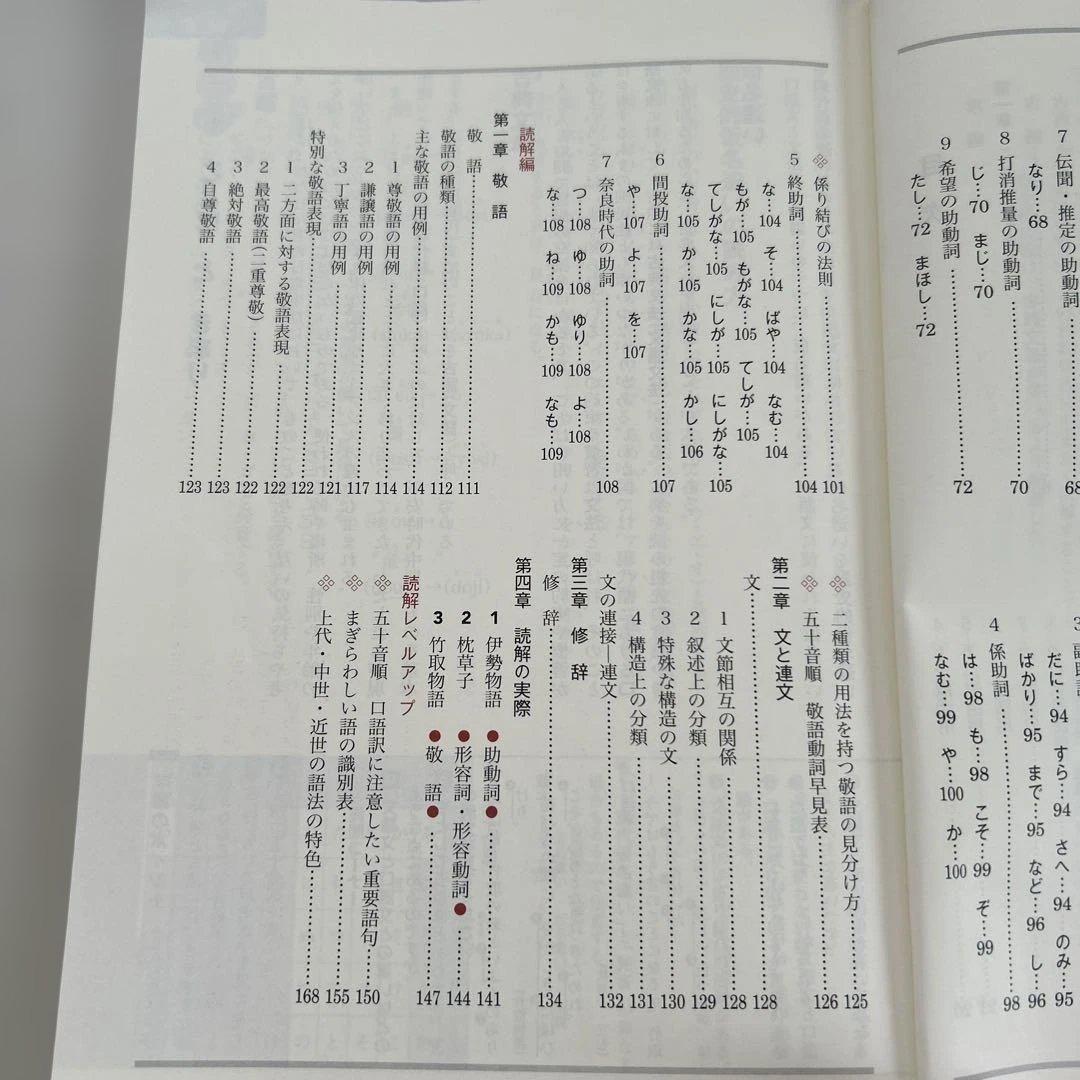 7 伝聞・推定の助動詞……68
なり…68
8 打消推量の助動詞……70
じ…70 まじ…70
9 希望の助動詞……72
たし…72 まほし…72
だに…94 すら…94 さへ…94 のみ…95
ばかり…95 まで…95 など…96 し…96
4 係助詞……98
は…98 も…98 こそ…99 ぞ…99
なむ…99 や…100 か…100
係り結びの法則……101
5 終助詞……104
な…104 そ…104 ばや…104 なむ…104
もが…105 もがな…105 てしが…105
てしがな…105 にしが…105 にしがな…105
な…105 か…105 かな…105 かし…106
6 間投助詞……107
や…107 よ…107 を…107
7 奈良時代の助詞……108
つ…108 ゆ…108 ゆり…108 よ…108
な…108 ね…109 かも…109 なも…109
読解編
第一章 敬語
敬語……111
敬語の種類……112
主な敬語の用例……114
1 尊敬語の用例……114
2 謙譲語の用例……117
3 丁寧語の用例……121
特別な敬語表現……122
1 二方面に対する敬語表現……122
2 最高敬語(二重尊敬)……122
3 絶対敬語……123
4 自尊敬語……123
二種類の用法を持つ敬語の見分け方……125
五十音順 敬語動詞早見表……126
第二章 文と連文
文……128
1 文節相互の関係……128
2 叙述上の分類……129
3 特殊な構造の文……130
4 構造上の分類……131
文の連接―連文……132
第三章 修辞
修辞……134
第四章 読解の実際
1 伊勢物語 ●助動詞●……141
2 枕草子 ●形容詞・形容動詞●……144
3 竹取物語 ●敬語●……147
読解レベルアップ
五十音順 口語訳に注意したい重要語句……150
まぎらわしい語の識別表……155
上代・中世・近世の語法の特色……168